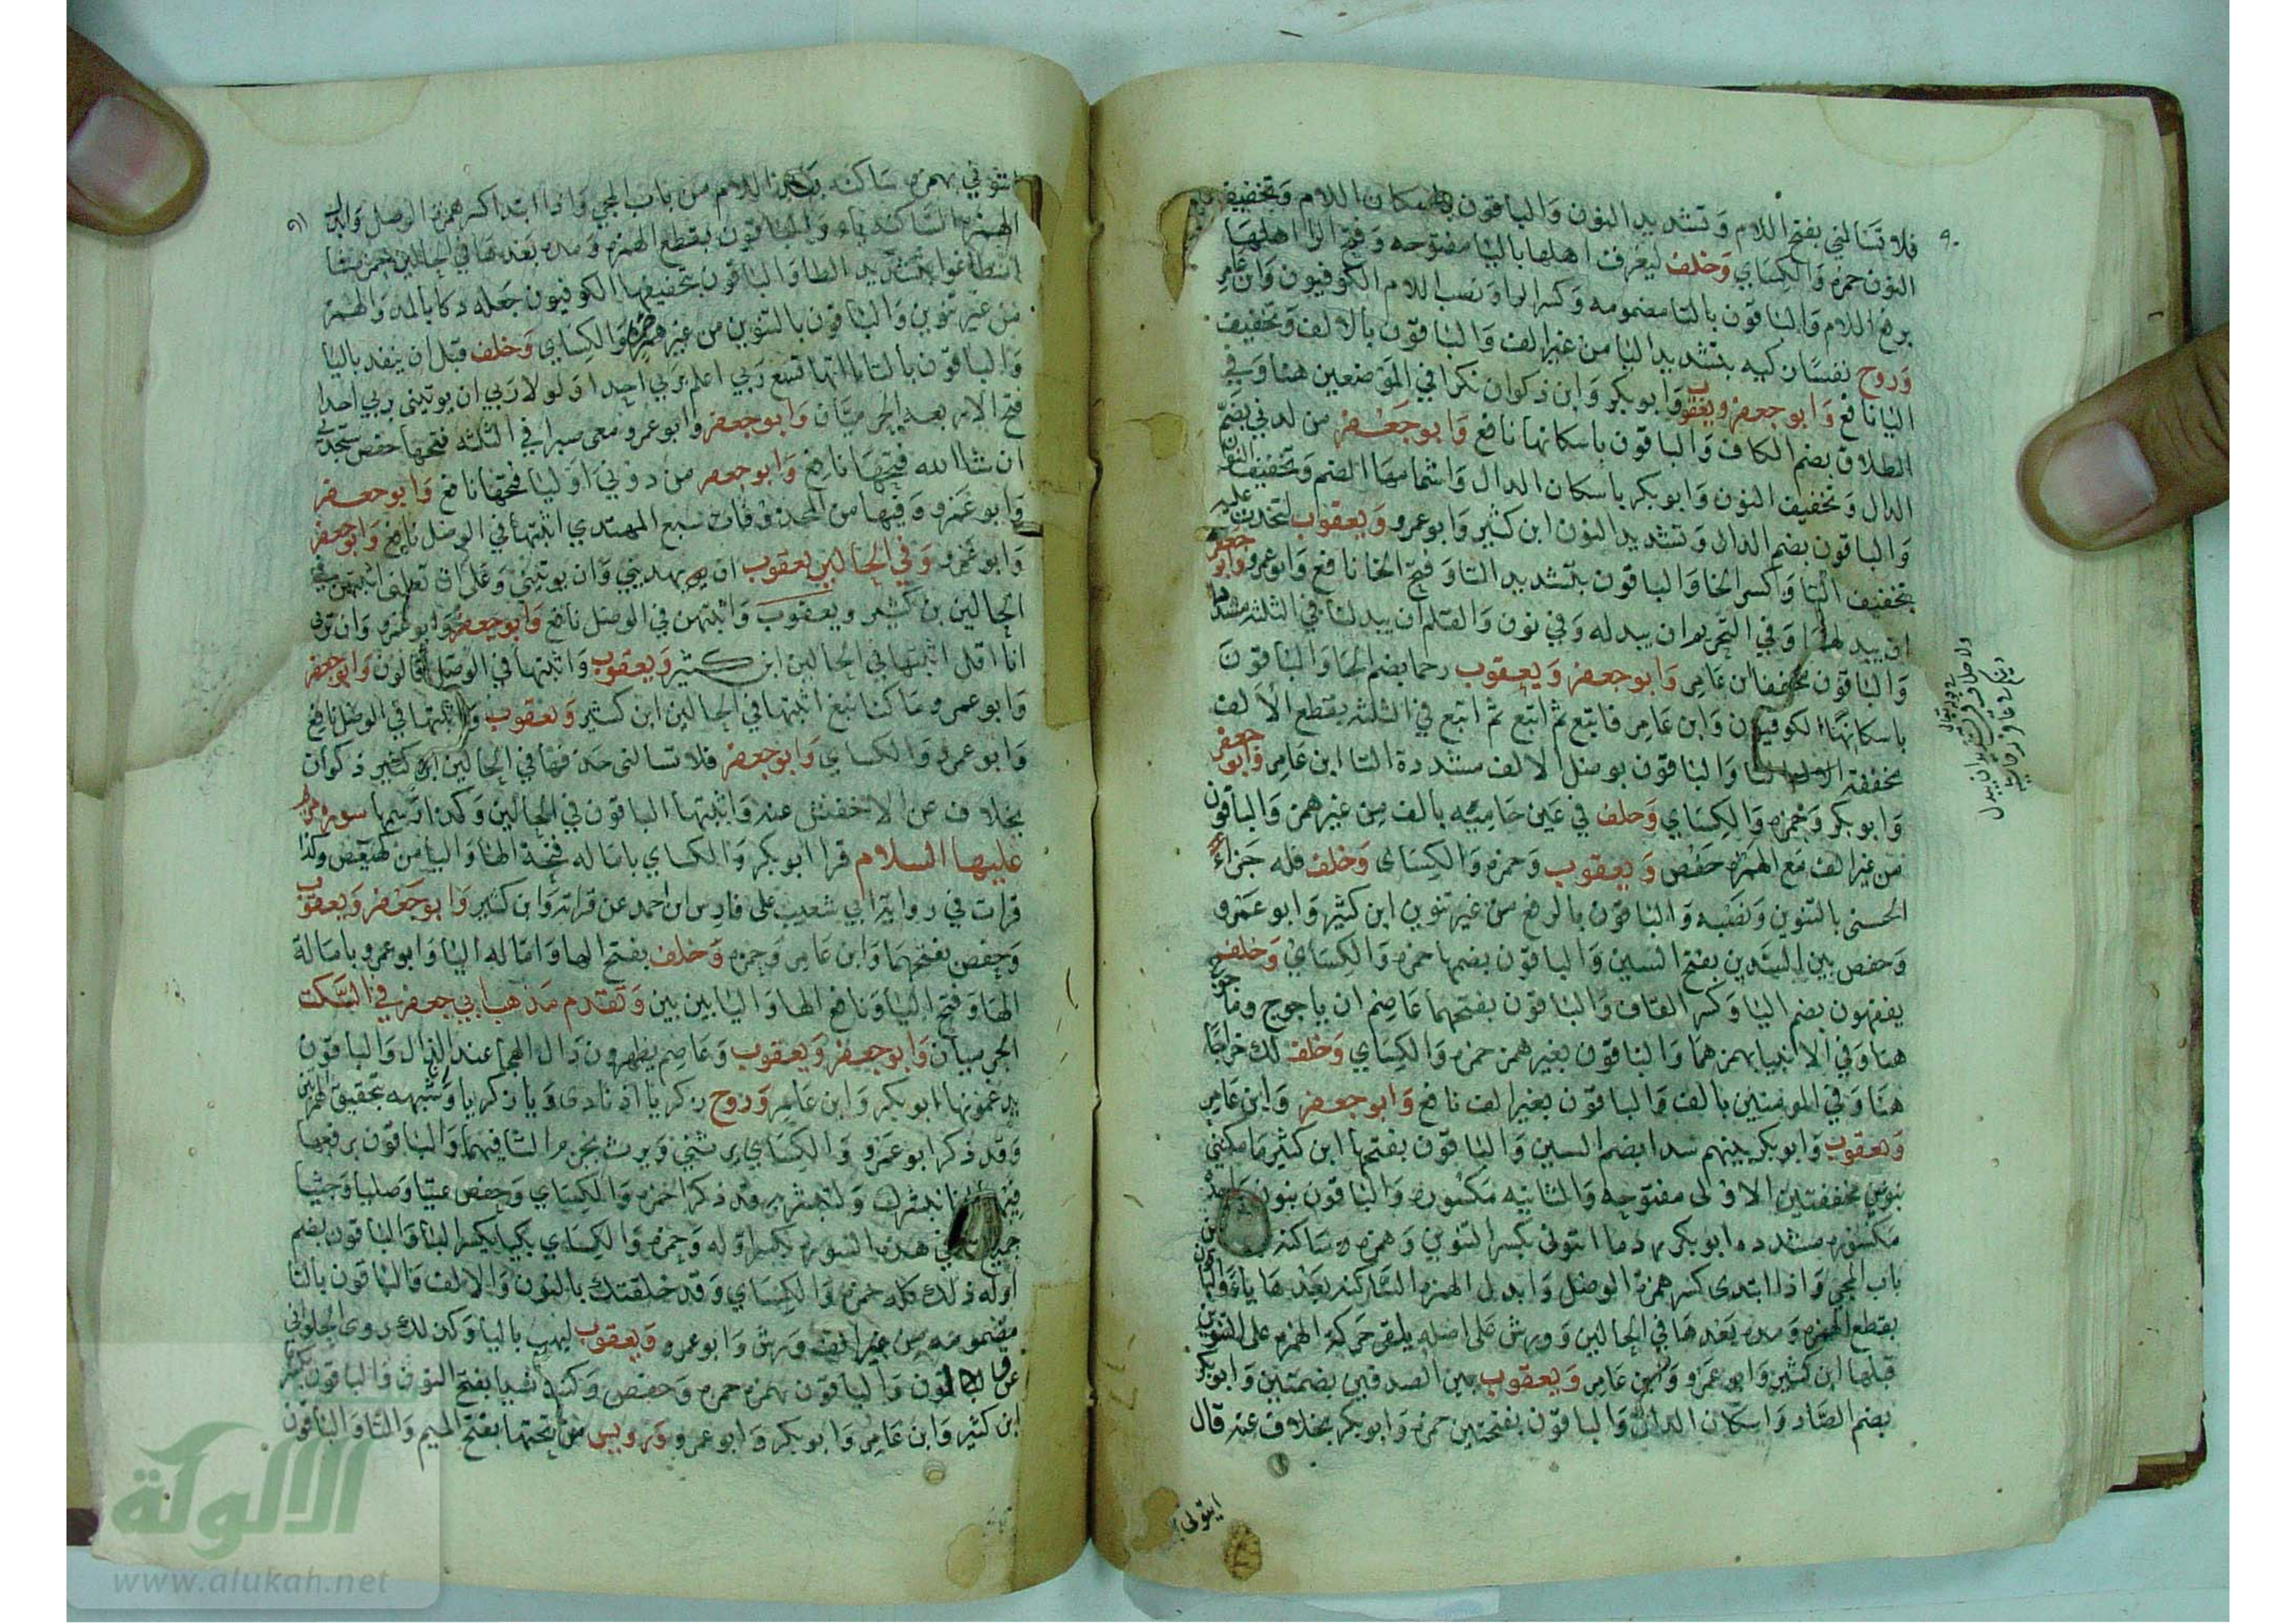 ٩٠
فلا تسالني بفتح اللام وتشديد النون والباقون باسكان اللام وتخفيف
النون حمزه والكساي وخلف ليغرق اهلها باليا مفتوحه وفتح الرا اهلها
برفع اللام والباقون بالتا مضمومه وكسر الرا ونصب اللام الكوفيون وابن عامر
وروح نفسا زكيه بتشديد اليا من غير الف والباقون بالالف وتخفيف
اليا نافع وابو جعفر ويعقوب وابو بكر وابن ذكوان نكرا في الموضعين هنا وفي
الطلاق بضم الكاف والباقون باسكانها نافع وابو جعفر من لدني بضم
الدال وتخفيف النون وابو بكر باسكان الدال واشمامها الضم وتخفيف النون
والباقون بضم الدال وتشديد النون ابن كثير وابو عمرو ويعقوب لتخذت عليه
بتخفيف التا وكسر الخا والباقون بتشديد التا وفتح الخا نافع وابو عمرو وابو جعفر
ان يبدلهما وفي التحريم ان يبدله وفي نون والقلم ان يبدلنا في الثلثه مشددا
والباقون مخففا ابن عامر وابو جعفر ويعقوب رحما بضم الحا والباقون
باسكانها الكوفيون وابن عامر فاتبع ثم اتبع ثم اتبع في الثلثه بقطع الالف
مخففة التا والباقون بوصل الالف مشددة التا ابن عامر وابو جعفر
وابو بكر وحمزه والكساي وخلف في عين حاميه بالف من غير همز والباقون
من غير الف مع الهمزه حفص ويعقوب وحمزه والكساى وخلف فله جزاء
الحسنى بالتنوين ونصبه والباقون بالرفع من غير تنوين ابن كثير وابو عمرو
وحفص بين السدين بفتح السين والباقون بضمها حمزه والكساي وخلف
يفقهون بضم اليا وكسر القاف والباقون بفتحهما عاصم ان ياجوج وماجوج
هنا وفي الانبيا بهمزهما والباقون بغير همز حمزه والكساي وخلف لك خراجا
هنا وفي المومنين بالف والباقون بغير الف نافع وابو جعفر وابن عامر
ويعقوب وابو بكر بينهم سدا بضم السين والباقون بفتحها ابن كثير ما مكنني
بنونين مخففتين الاولى مفتوحه والثانيه مكسوره والباقون بنون واحده
مكسوره مشدده ابو بكر ردما ائتونى بكسر التنوين وهمزه ساكنه من
باب المجي واذا ابتدى كسر همزة الوصل وابدل الهمزه الساكنه بعدها ياء والباقون
بقطع الهمزه ومده بعدها في الحالين وورش على اصله يلقى حركة الهمزه على التنوين
قبلها ابن كثير وابو عمرو وابن عامر ويعقوب بين الصدفين بضمتين وابو بكر
بضم الصاد واسكان الدال والباقون بفتحتين حمزه وابو بكر بخلاف عنه قال
ايتوني
٩١
ائتوني بهمزه ساكنه بعد اللام من باب المجي واذا ابتدا كسر همزة الوصل وابدل
الهمزه الساكنه ياء والباقون بقطع الهمزه ومده بعدها في الحالين حمزه فما
اسطاعوا بتشديد الطا والباقون بتخفيفها الكوفيون جعله دكا بالمد والهمز
من غير تنوين والباقون بالتنوين من غير همز حمزه والكساي وخلف قبل ان ينفد باليا
والباقون بالتا ياءاتها تسع ربي اعلم بربي احدا ولولا ربي ان يوتيني بربي احدا
فتح الاربعه الحرميان وابو جعفر وابو عمرو معي صبرا في الثلثه فتحها حفص ستجدني
ان شا الله فتحها نافع وابو جعفر من دوني اوليا فتحها نافع وابو جعفر
وابو عمرو وفيها من المحذوفات سبع المهتدي اثبتها في الوصل نافع وابو جعفر
وابو عمرو وفي الحالين يعقوب ان يهديني وان يوتيني وعلى ان تعلمني اثبتهن في
الحالين بن كثير ويعقوب واثبتهن في الوصل نافع وابو جعفر وابو عمرو وان ترني
انا اقل اثبتها في الحالين ابن كثير ويعقوب واثبتها في الوصل قالون وابو جعفر
وابو عمرو وما كنا نبغ اثبتها في الحالين ابن كثير ويعقوب واثبتها في الوصل نافع
وابو عمرو والكساي وابو جعفر فلا تسالنى حذفها في الحالين ذكوان
بخلاف عن الاخفش عنه واثبتها الباقون في الحالين وكذا رسمها سورة مريم
عليها السلام قرا ابو بكر والكساي بامالة فتحة الها واليا من كهيعص وكذا
قرات في رواية ابي شعيب على فارس ابن احمد عن قراته وابن كثير وابو جعفر ويعقوب
وحفص بفتحهما وابن عامر وحمزه وخلف بفتح الها وامالة اليا وابو عمرو بامالة
الها وفتح اليا ونافع الها واليا بين بين وتقدم مذهب ابي جعفر في السكت
الحرميان وابو جعفر ويعقوب وعاصم يظهرون دال الهجا عند الذال والباقون
يدغمونها ابو بكر وابن عامر وروح زكريا اذ نادى ويا زكريا وشبهه بتحقيق الهمزتين
وقد ذكر ابو عمرو والكساي يرثني ويرث بجزم الثا فيهما والباقون برفعها
فيهما انا نبشرك ولتبشر به قد ذكرا حمزه والكساي وحفص عتيا وصليا وجثيا
في هذه السوره بكسر اوله وحمزه والكساي بكيا بكسر البا والباقون بضم
اوله ذلك كله حمزه والكساي وقد خلقتك بالنون والالف والباقون بالتا
مضمومه من غير الف ورش وابو عمرو ويعقوب ليهب باليا وكذلك روى الحلواني
عن قالون والباقون بهمزه حمزه وحفص وكنت نسيا بفتح النون والباقون بكسرها
ابن كثير وابن عامر وابو بكر وابو عمرو ورويس من تحتها بفتح الميم والتا والباقون
الألوكة
www.alukah.net